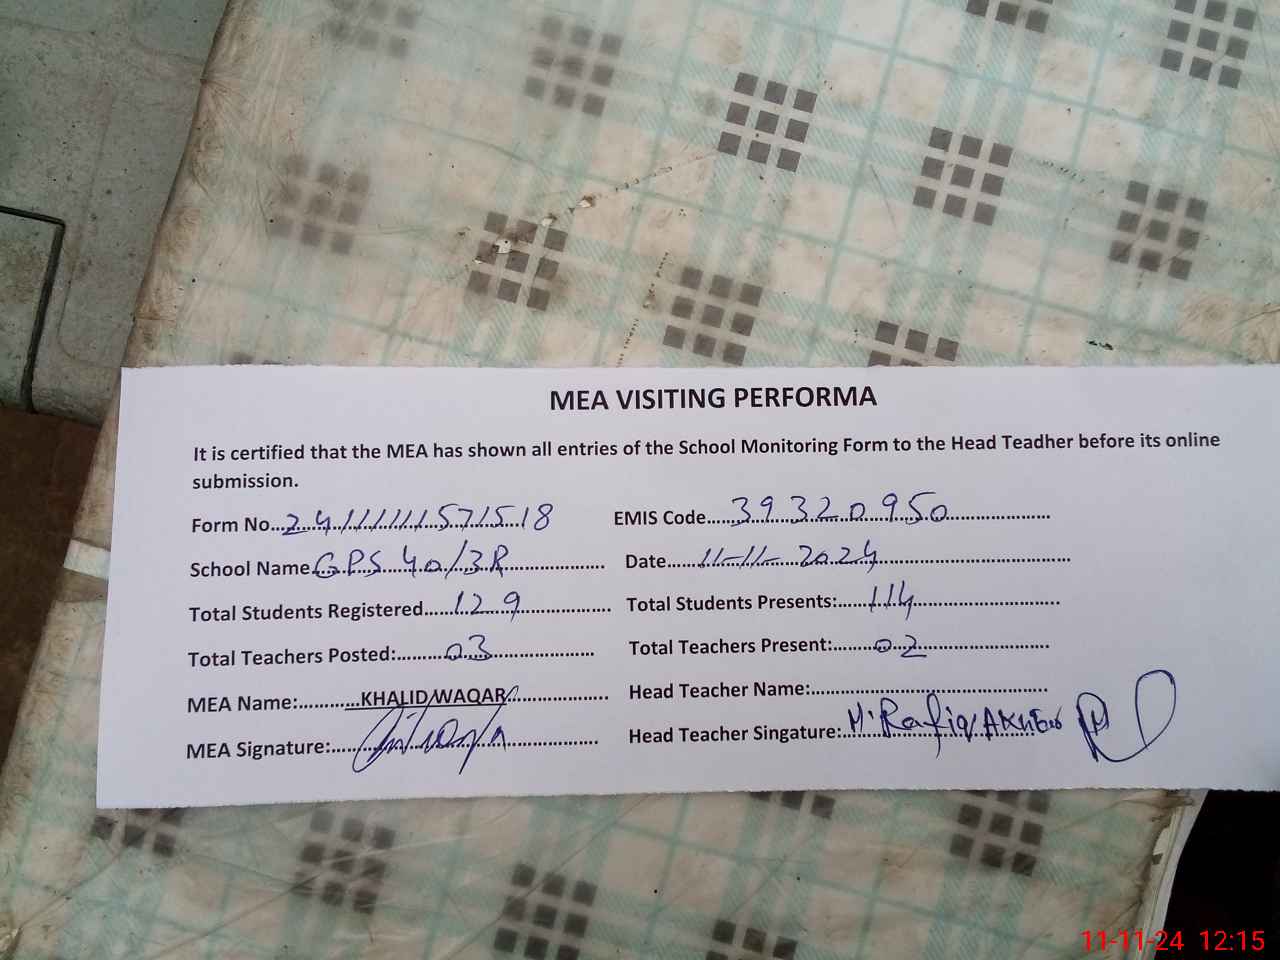 MEA VISITING PERFORMA
It is certified that the MEA has shown all entries of the School Monitoring Form to the Head Teadher before its online
submission.
Form No...24111111571518 EMIS Code......39320950
School Name GPS 40/3R Date......11-11-2024
Total Students Registered......129 Total Students Presents:......114
Total Teachers Posted:......03 Total Teachers Present:......02
MEA Name:......KHALID WAQAR Head Teacher Name:......
MEA Signature:...... Head Teacher Singature: M. Rafiq
11-11-24 12:15